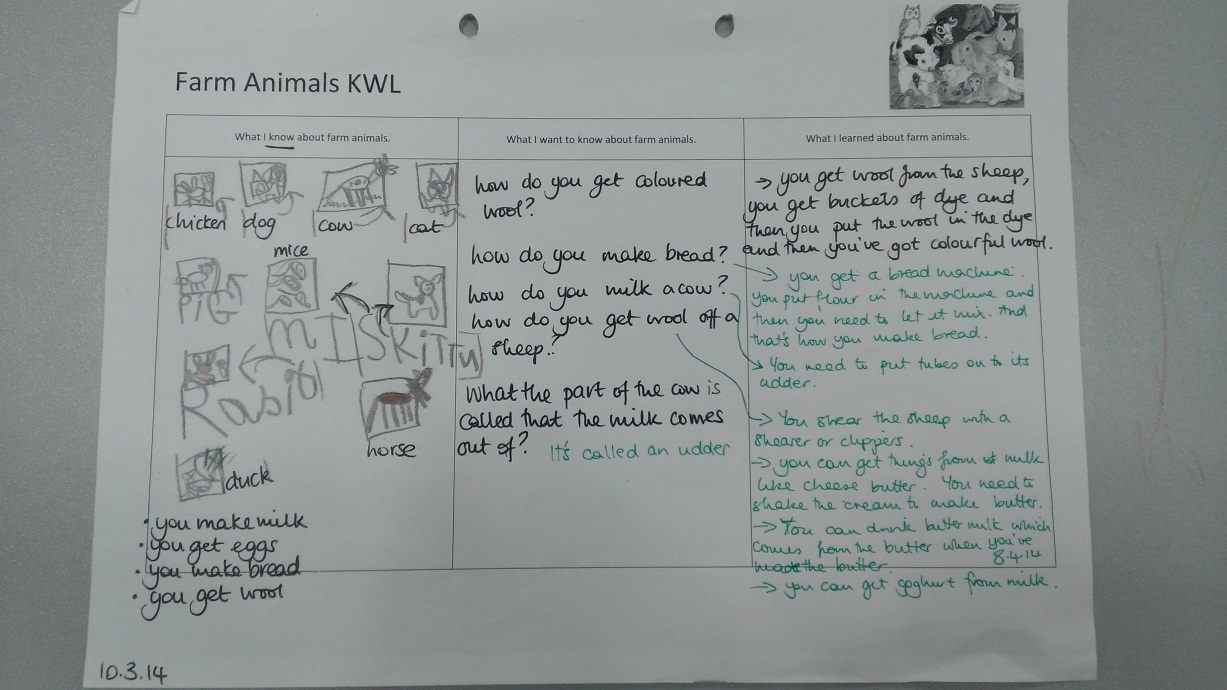 Farm Animals KWL
What I know about farm animals.
chicken dog cow cat
mice
PiG
KiTTy
Rabit
horse
duck
• you make milk
• you get eggs
• you make bread
• you get wool
What I want to know about farm animals.
how do you get coloured
wool?
how do you make bread?
how do you milk a cow?
how do you get wool off a
sheep?
What the part of the cow is
called that the milk comes
out of? It's called an udder
What I learned about farm animals.
→ you get wool from the sheep,
you get buckets of dye and
then you put the wool in the dye
and then you've got colourful wool.
→ you get a bread machine.
you put flour in the machine and
then you need to let it mix. And
that's how you make bread.
→ You need to put tubes on to its
udder.
→ You shear the sheep with a
shearer or clippers.
→ you can get things from milk
like cheese butter. You need to
shake the cream to make butter.
→ You can drink butter milk which
comes from the butter when you've
made the butter.
8.4.14
→ you can get yoghurt from milk.
10.3.14